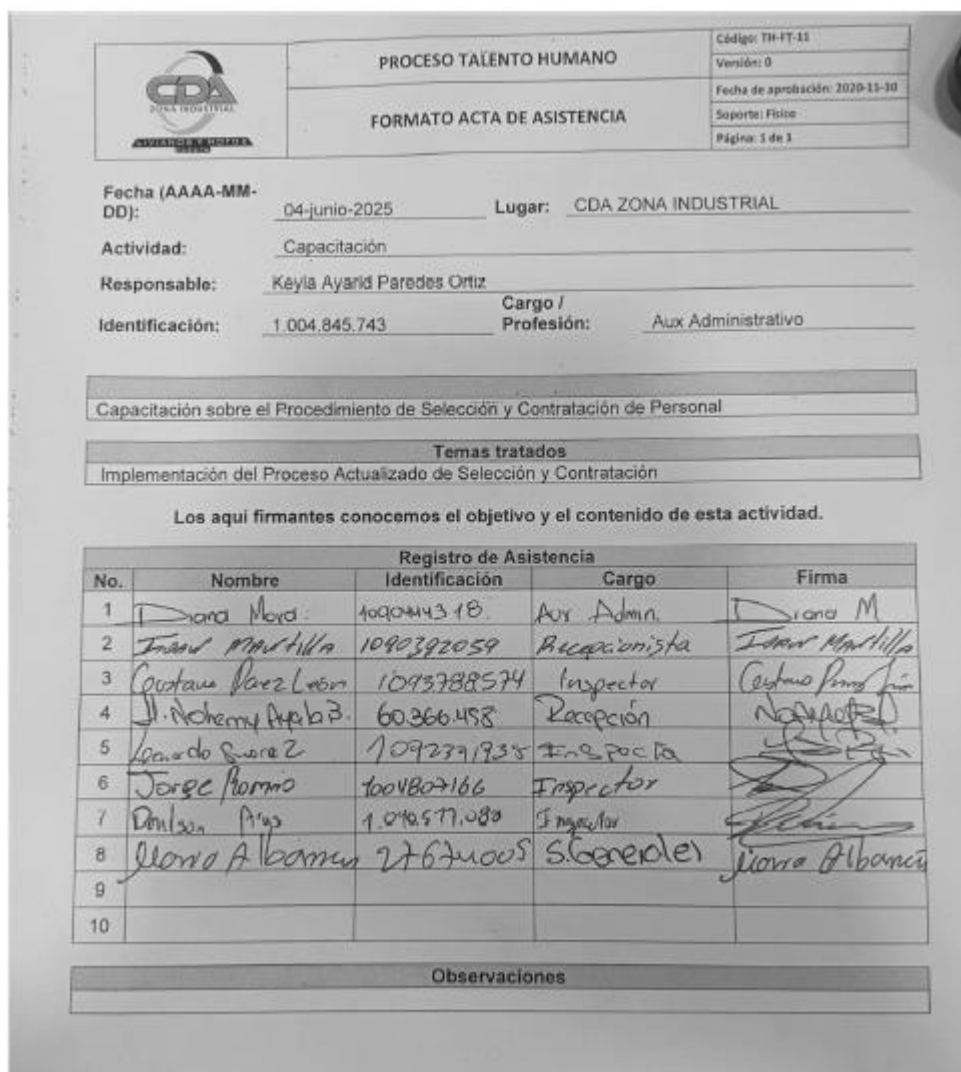 CDA
ZONA INDUSTRIAL
LIVIANOS Y MOTOS
PROCESO TALENTO HUMANO
FORMATO ACTA DE ASISTENCIA
Código: TH-FT-11
Versión: 0
Fecha de aprobación: 2020-11-30
Soporte: Físico
Página: 1 de 1
Fecha (AAAA-MM-DD): 04-junio-2025 Lugar: CDA ZONA INDUSTRIAL
Actividad: Capacitación
Responsable: Keyla Ayarid Paredes Ortiz
Identificación: 1.004.845.743 Cargo / Profesión: Aux Administrativo
Capacitación sobre el Procedimiento de Selección y Contratación de Personal
Temas tratados
Implementación del Proceso Actualizado de Selección y Contratación
Los aqui firmantes conocemos el objetivo y el contenido de esta actividad.
Registro de Asistencia
No. Nombre Identificación Cargo Firma
1 Diana Mora Aux Admin. Diana M
2 Mantilla 1090392059 Recepcionista Mantilla
3 Gustavo Paez León 1093788574 Inspector
4 Nohemy Ayala B. 60.366.458 Recepción
5 Leonardo Suarez
6 Jorge 1004807166 Inspector
7 Inspector
8 Albarracin 27674005 S.Generales
9
10
Observaciones